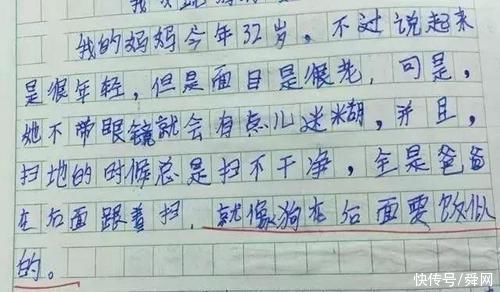 我的妈妈今年32岁，不过说起来
是很年轻，但是面目是很老，可是，
她不带眼镜就会有点儿迷糊，并且，
扫地的时候总是扫不干净，全是爸爸
在后面跟着扫，就像狗在后面要饭似
的。
快传号/舜网